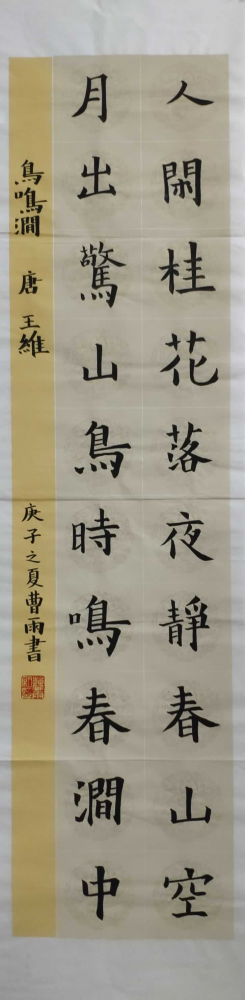 人閑桂花落夜靜春山空
月出驚山鳥時鳴春澗中
鳥鳴澗 唐 王維 庚子之夏曹雨書